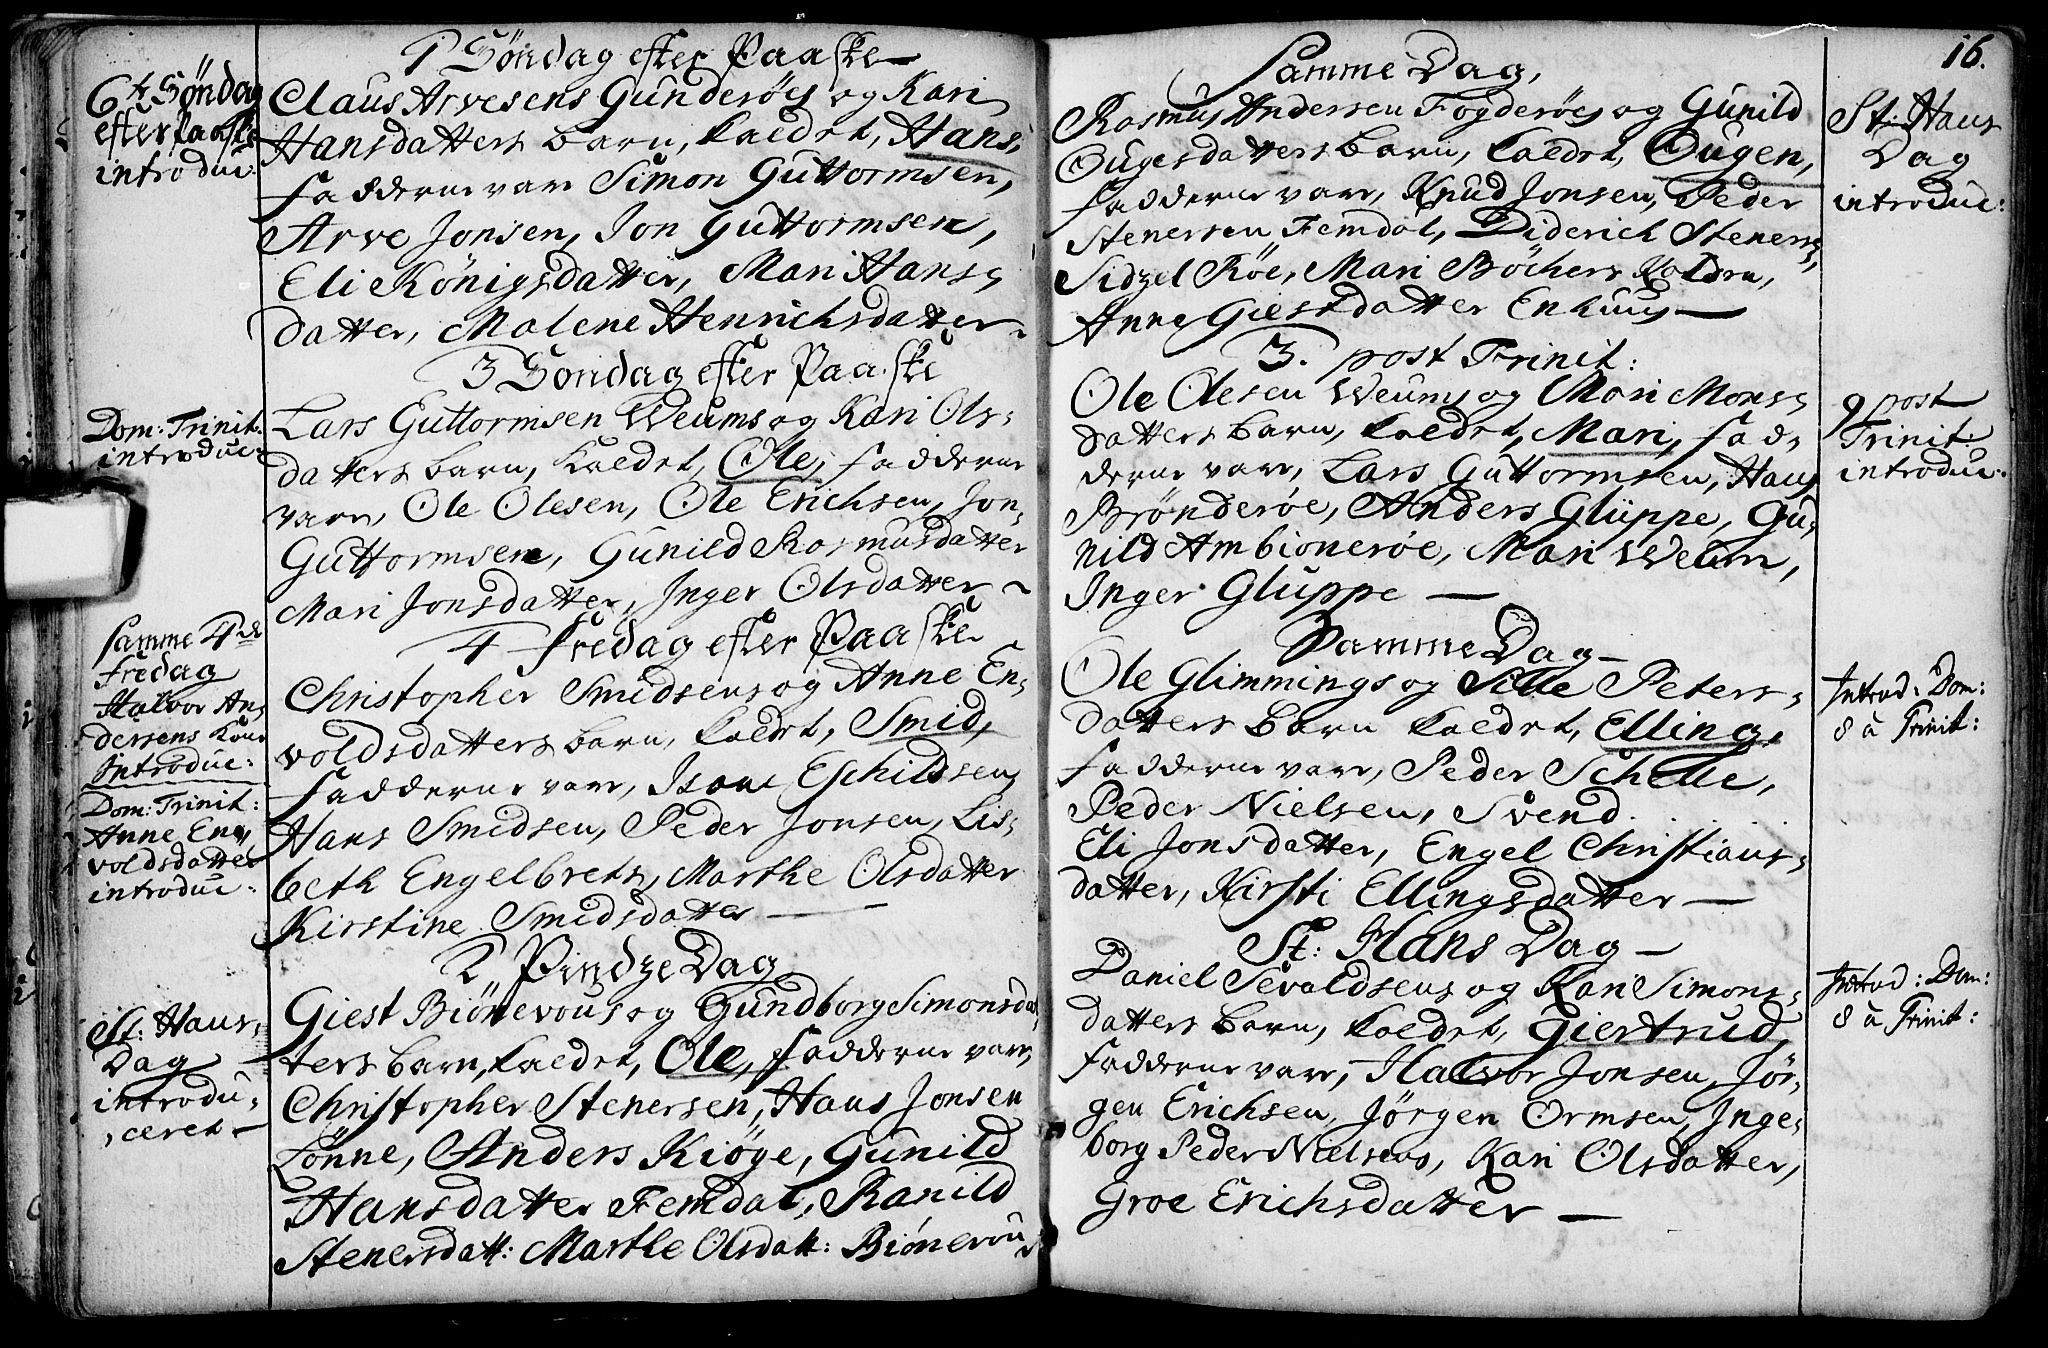 1 Söndag efter Paaske
6te Söndag
efter Paaske
introduc:
Claus Arvesens Gunderöes og Kari
Hansdatters barn, kaldet, Hans,
fadderne vare Simon Guttormsen,
Arve Jonsen, Jon Guttormsen,
Eli Königsdatter, Mari Hans,
datter, Malene Henrichsdatter
3 Söndag efter Paaske
Dom: Trinit:
introduc:
Lars Guttormsen Weums og Kari Ols,
datters barn, kaldet, Ole, fadderne
vare, Ole Olesen, Ole Erichsen, Jon
Guttormsen, Gunild Rasmusdatter
Mari Jonsdatter, Inger Olsdatter
4 Fredag efter Paaske
Samme 4de
Fredag
Halvor An,
dersens Kone
Introduc:
Dom: Trinit:
Anne En,
voldsdatter
introduc:
Christopher Smidsens og Anne En,
voldsdatters barn, kaldet, Smid,
fadderne vare, Isaac Eschildsen,
Hans Smidsen, Peder Jonsen, Lis,
beth Engelbrets, Marthe Olsdatter
Kirstine Smidsdatter
2 Pindze Dag
St: Hans,
Dag
introdu,
,ceret
Giest Biönevous og Gundborg Simonsdat,
ters barn, kaldet, Ole, fadderne vare,
Christopher Stenersen, Hans Jonsen
Lönne, Anders Kiöge, Gunild
Hansdatter Femdal, Ranild
Stenersdatt: Marthe Olsdatt: Biönevou
16.
Samme Dag,
Rasmus Andersen Fogderöes og Gunild
Ougesdatters barn, kaldet, Ougen,
fadderne vare, Knud Jonsen, Peder
Stenersen Femdal, Diderich Steners,
Sidzel Röe, Mari Böchers Kolderu,
Anne Giestdatter Enhuus
St: Hans
Dag
introduc:
3. post Trinit:
Ole Olesen Weums og Mari Mons,
datters barn, kaldet, Mari, fad,
derne vare, Lars Guttormsen, Hans
Brönderöe, Anders Gluppe, Gu,
nild Ambioneröe, Mari Weum,
Inger Gluppe
9 post
Trinit:
introduc:
Samme Dag
Ole Glimmings og Sille Peters,
datters barn kaldet, Elling,
fadderne vare, Peder Schelle,
Peder Nielsen, Svend . . . .
Eli Jonsdatter, Engel Christians,
datter, Kirsti Ellingsdatter
Introd: Dom:
8 a Trinit:
St: Hans Dag
Daniel Sevaldsens og Kari Simons,
datters barn, kaldet, Giertrud,
fadderne vare, Halvor Jonsen, Jör,
gen Erichsen, Jörgen Ormsen, Inge,
borg Peder Nielsens, Kari Olsdatter,
Groe Erichsdatter
Introd: Dom:
8 a Trinit: